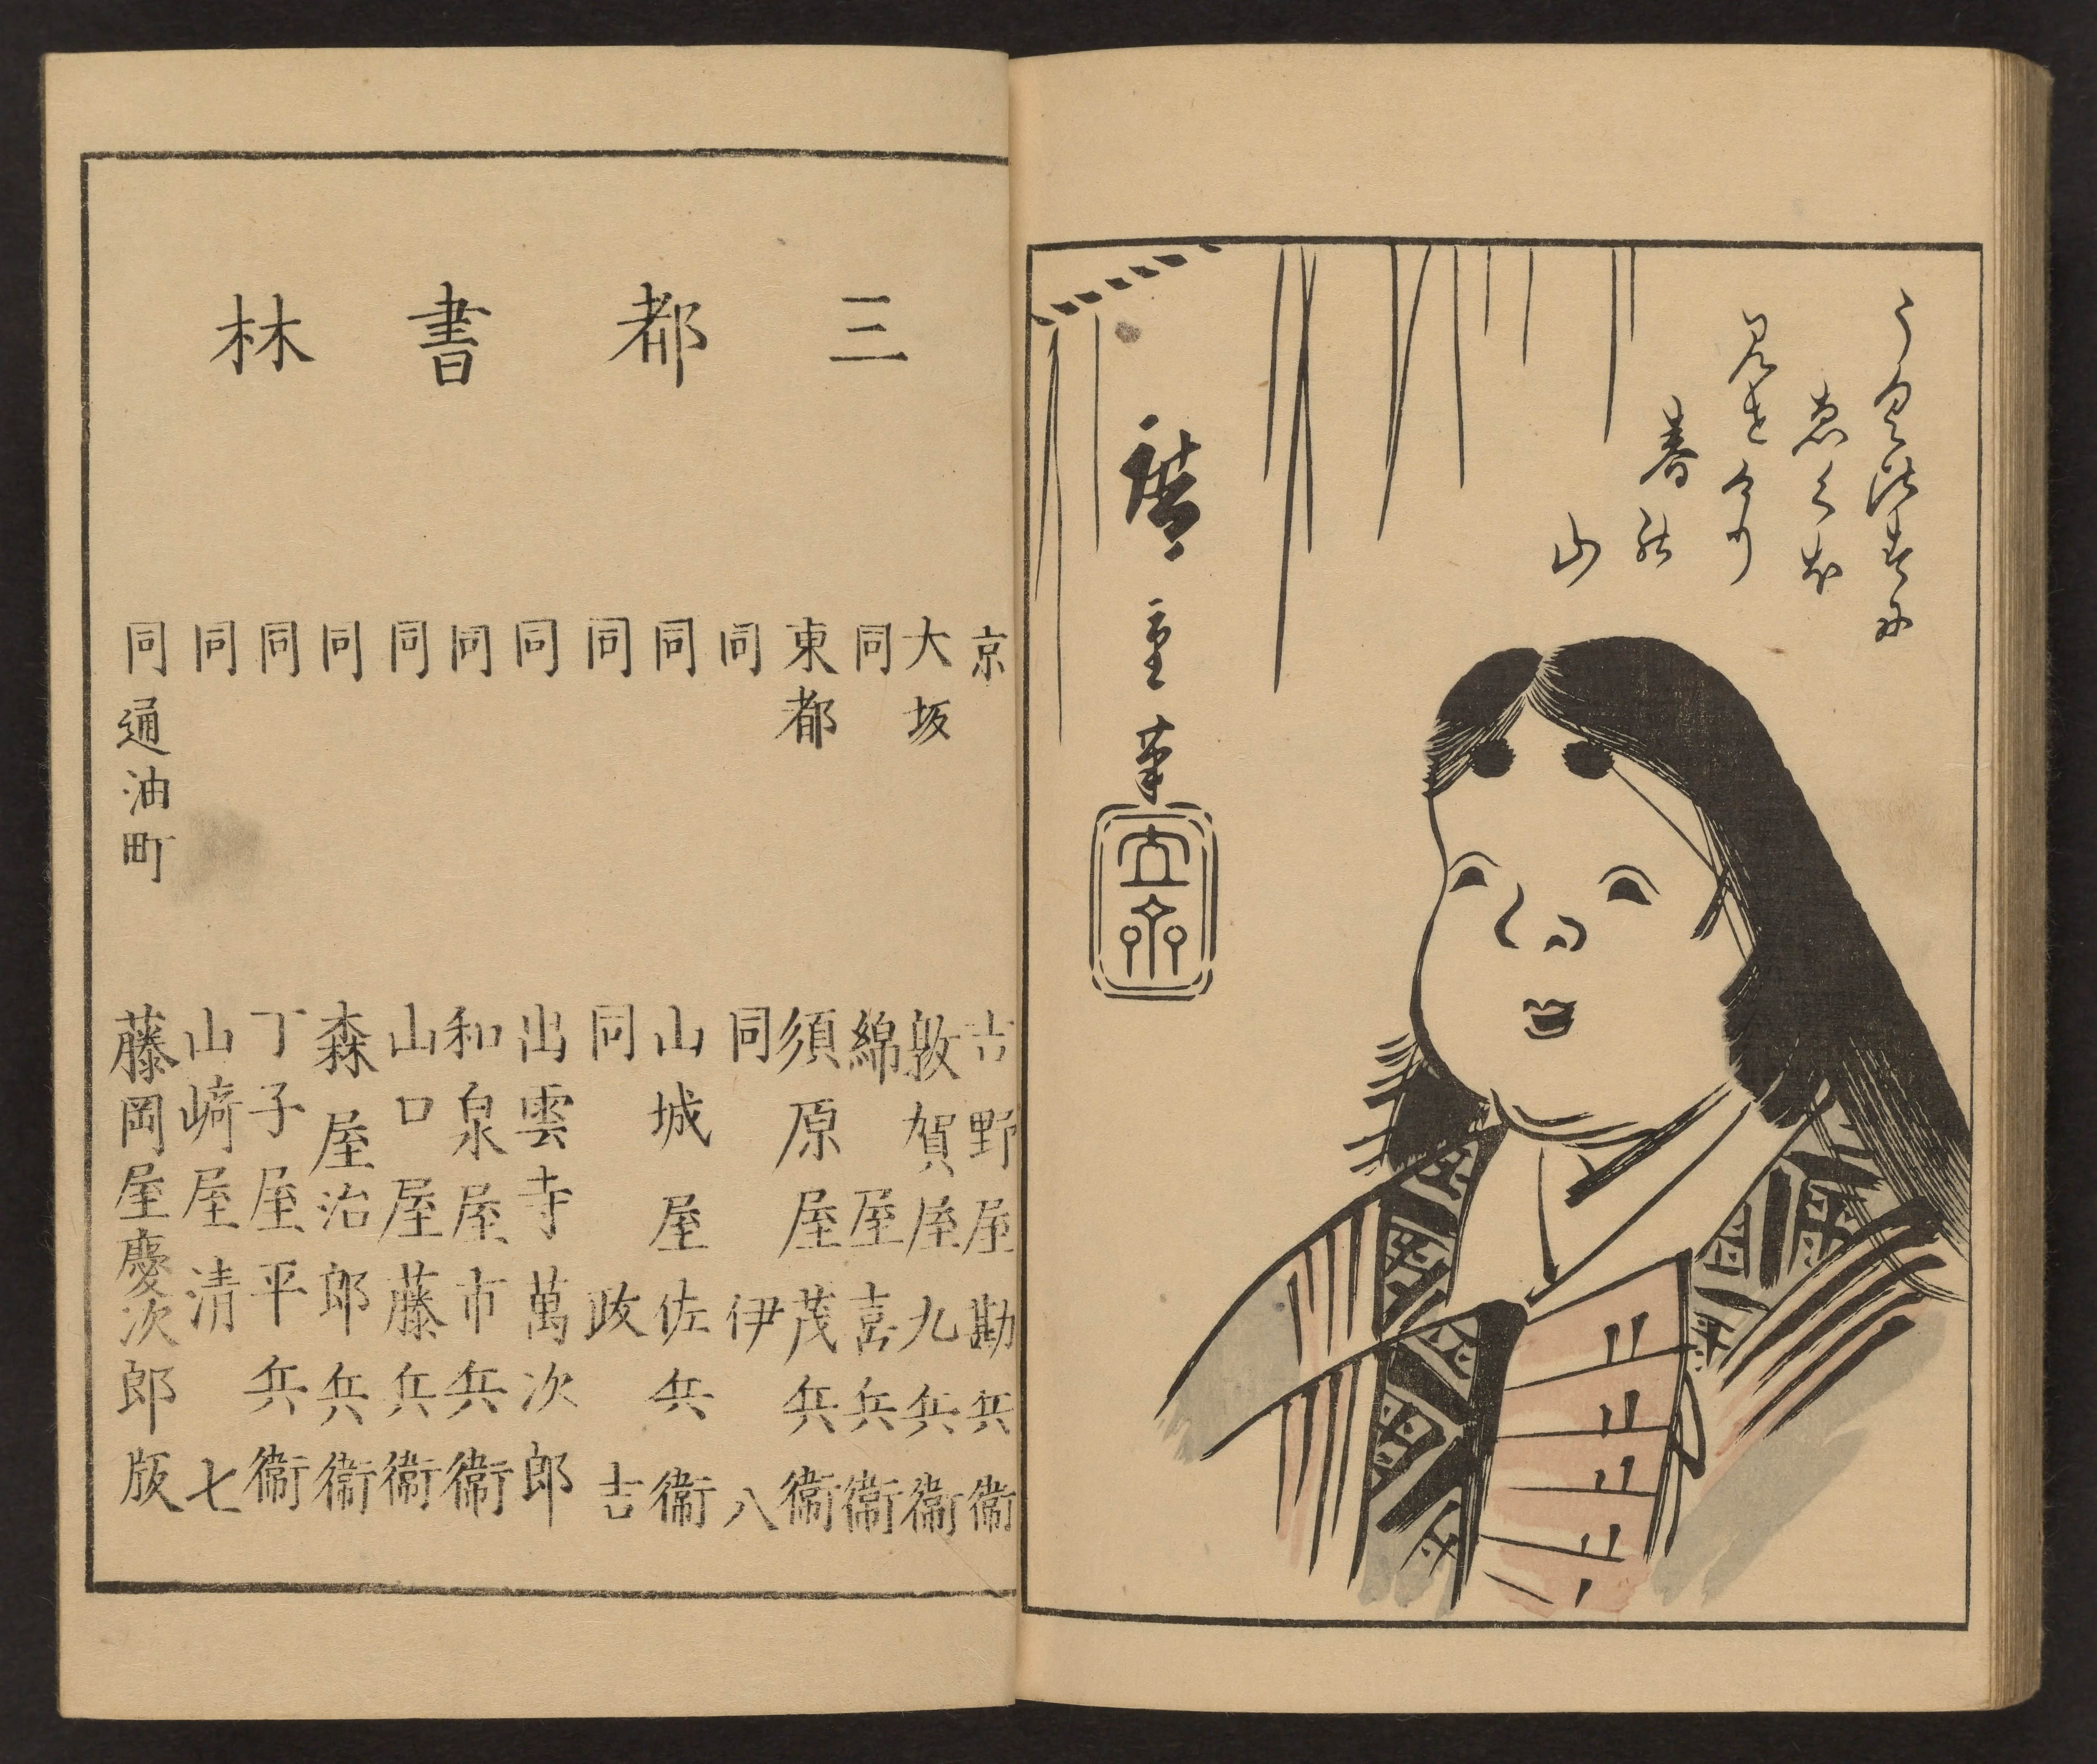 うくひすに
ゑくほ
見せけり
春の
山
廣重筆
立斎
三都書林
京 吉野屋勘兵衛
大坂 敦賀屋九兵衛
同 綿屋喜兵衛
東都 須原屋茂兵衛
同 同 伊八
同 山城屋佐兵衛
同 同 政吉
同 出雲寺萬次郎
同 和泉屋市兵衛
同 山口屋藤兵衛
同 森屋治郎兵衛
同 丁子屋平兵衛
同 山崎屋清七
同 通油町 藤岡屋慶次郎版